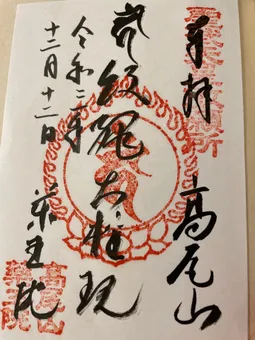 奉拝
高尾山
飯縄大権現
令和二年
十二月十二日
薬王院